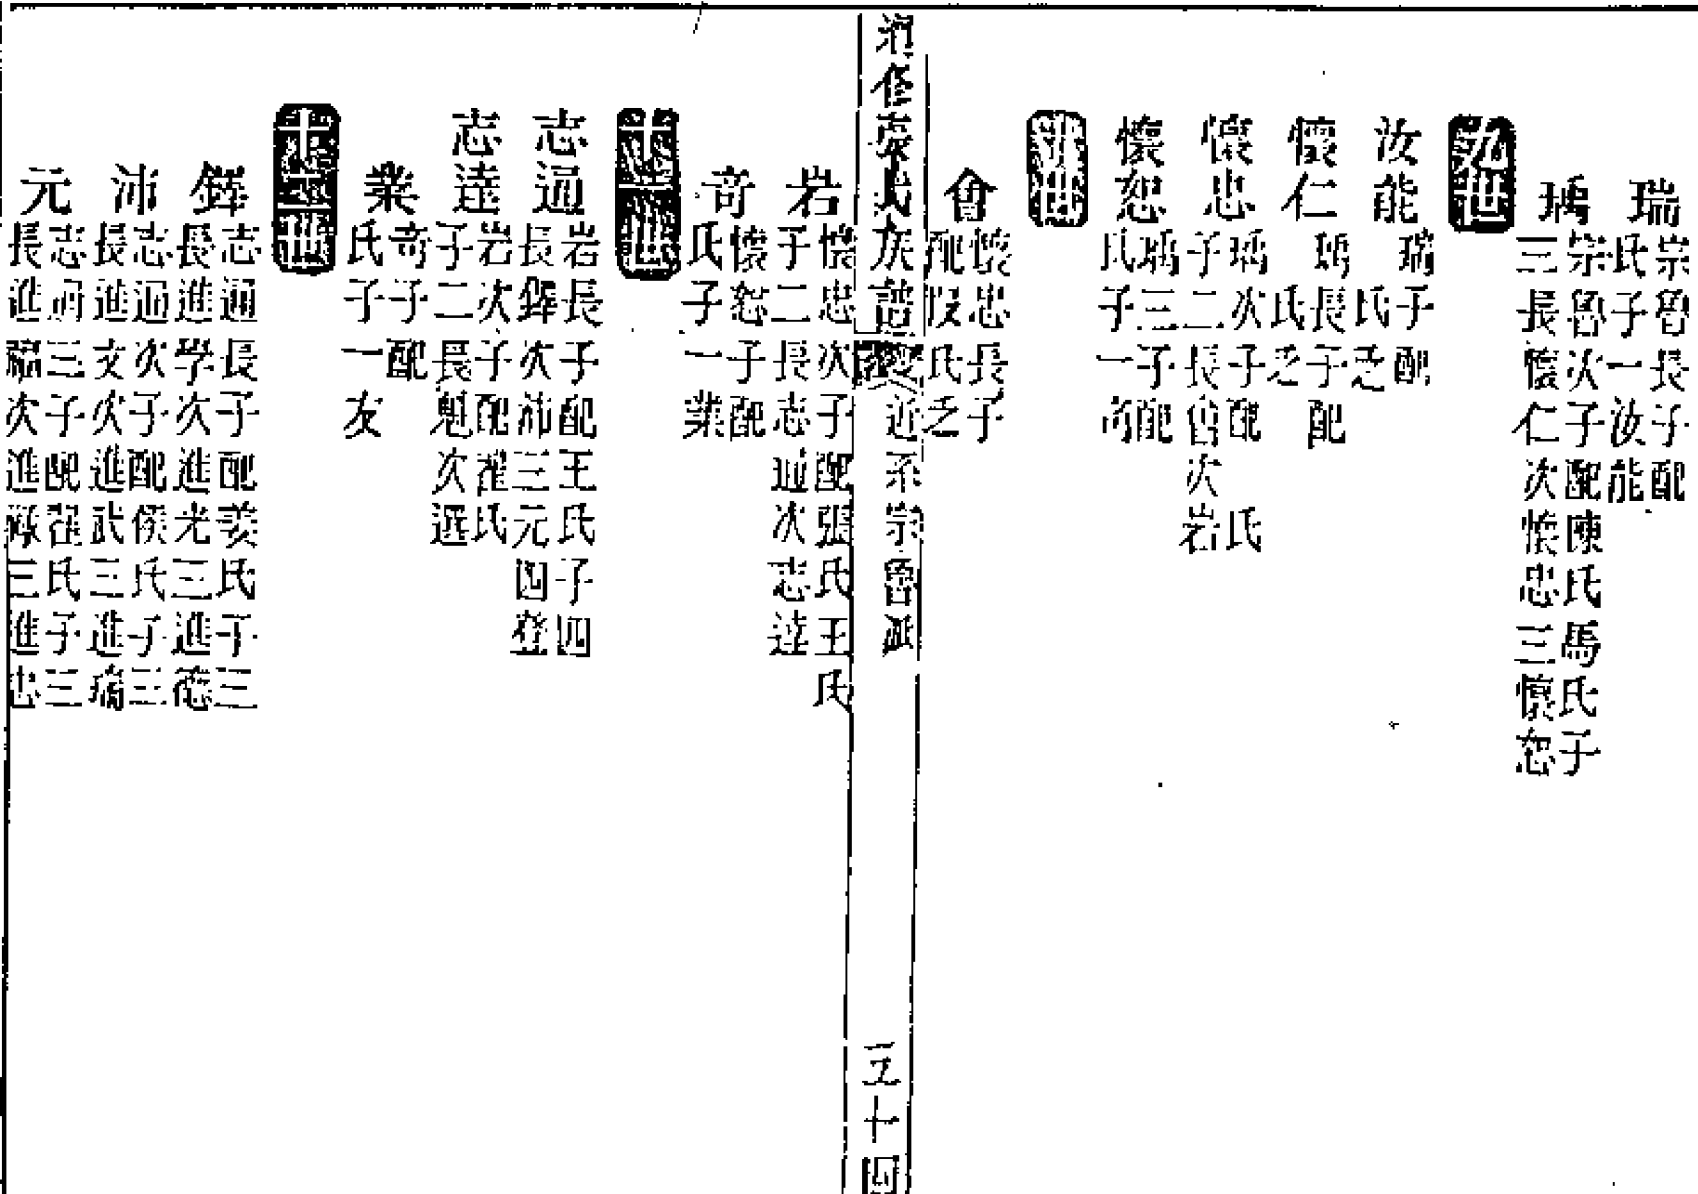 瑞
宗魯長子配
氏子一汝能
瑀
宗魯次子配陳氏馬氏子
三長懷仁次懷忠三懷恕
九世
汝能
瑞子配
氏乏
懷仁
瑀長子配
氏乏
懷忠
瑀次子配 氏
子二長會次岩
懷恕
瑀三子配
氏子一奇
十世
會
懷忠長子
配段氏乏
修 氏族譜 近系宗魯派 五十四
岩
懷忠次子配張氏王氏
子二長志通次志達
奇
懷恕子配
氏子一業
十一世
志通
岩長子配王氏子四
長鐸次沛三元四登
志達
岩次子配翟氏
子二長魁次選
業
奇子配
氏子一友
十二世
鐸
志通長子配姜氏子三
長進學次進光三進德
沛
志通次子配侯氏子三
長進文次進武三進
元
志通三子配翟氏子三
長進福次進 三進忠